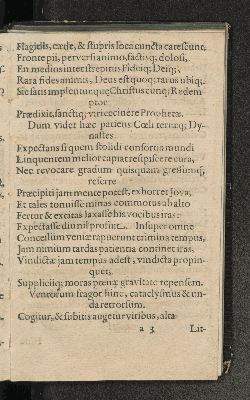 Flagitiis, cæde, & stupris loca cuncta calescunt,
Fronte pii, perversi animo, factisq; dolosi,
En medios inter strepitus Fideiq; Deiq;,
Rara fides animis, Deus est quoq; rarus ubiq;.
Sic satis implentur quæ Christus cunq; Redem-
ptor
Prædixit, sanctiq; viri cecinere Prophetæ.
Dum videt hæc patiens Cœli terræq; Dy-
nastes,
Expectans si quem stolidi consortia mundi
Linquentem melior capiat resipiscere cura,
Nec revocare gradum quisquam gressumq;
referre
Præcipiti jam mente potest, exhorret Jova;
Et tales tonuisse minas commotus ab alto
Fertur & excitas laxasse his vocibus iras.
Expectasse diu nil profuit. Insuper omne
Concessum veniæ rapuerunt crimina tempus,
Jam nimium tardas patientia continet iras,
Vindictæ jam tempus adest, vindicta propin-
quet;
Suppliciiq; moras pœnæ gravitate repensem.
Ventorum fragor hinc, cataclysmus & un-
da retrorsum
Cogitur, & subitis augetur viribus, alta
a 3 Lit-